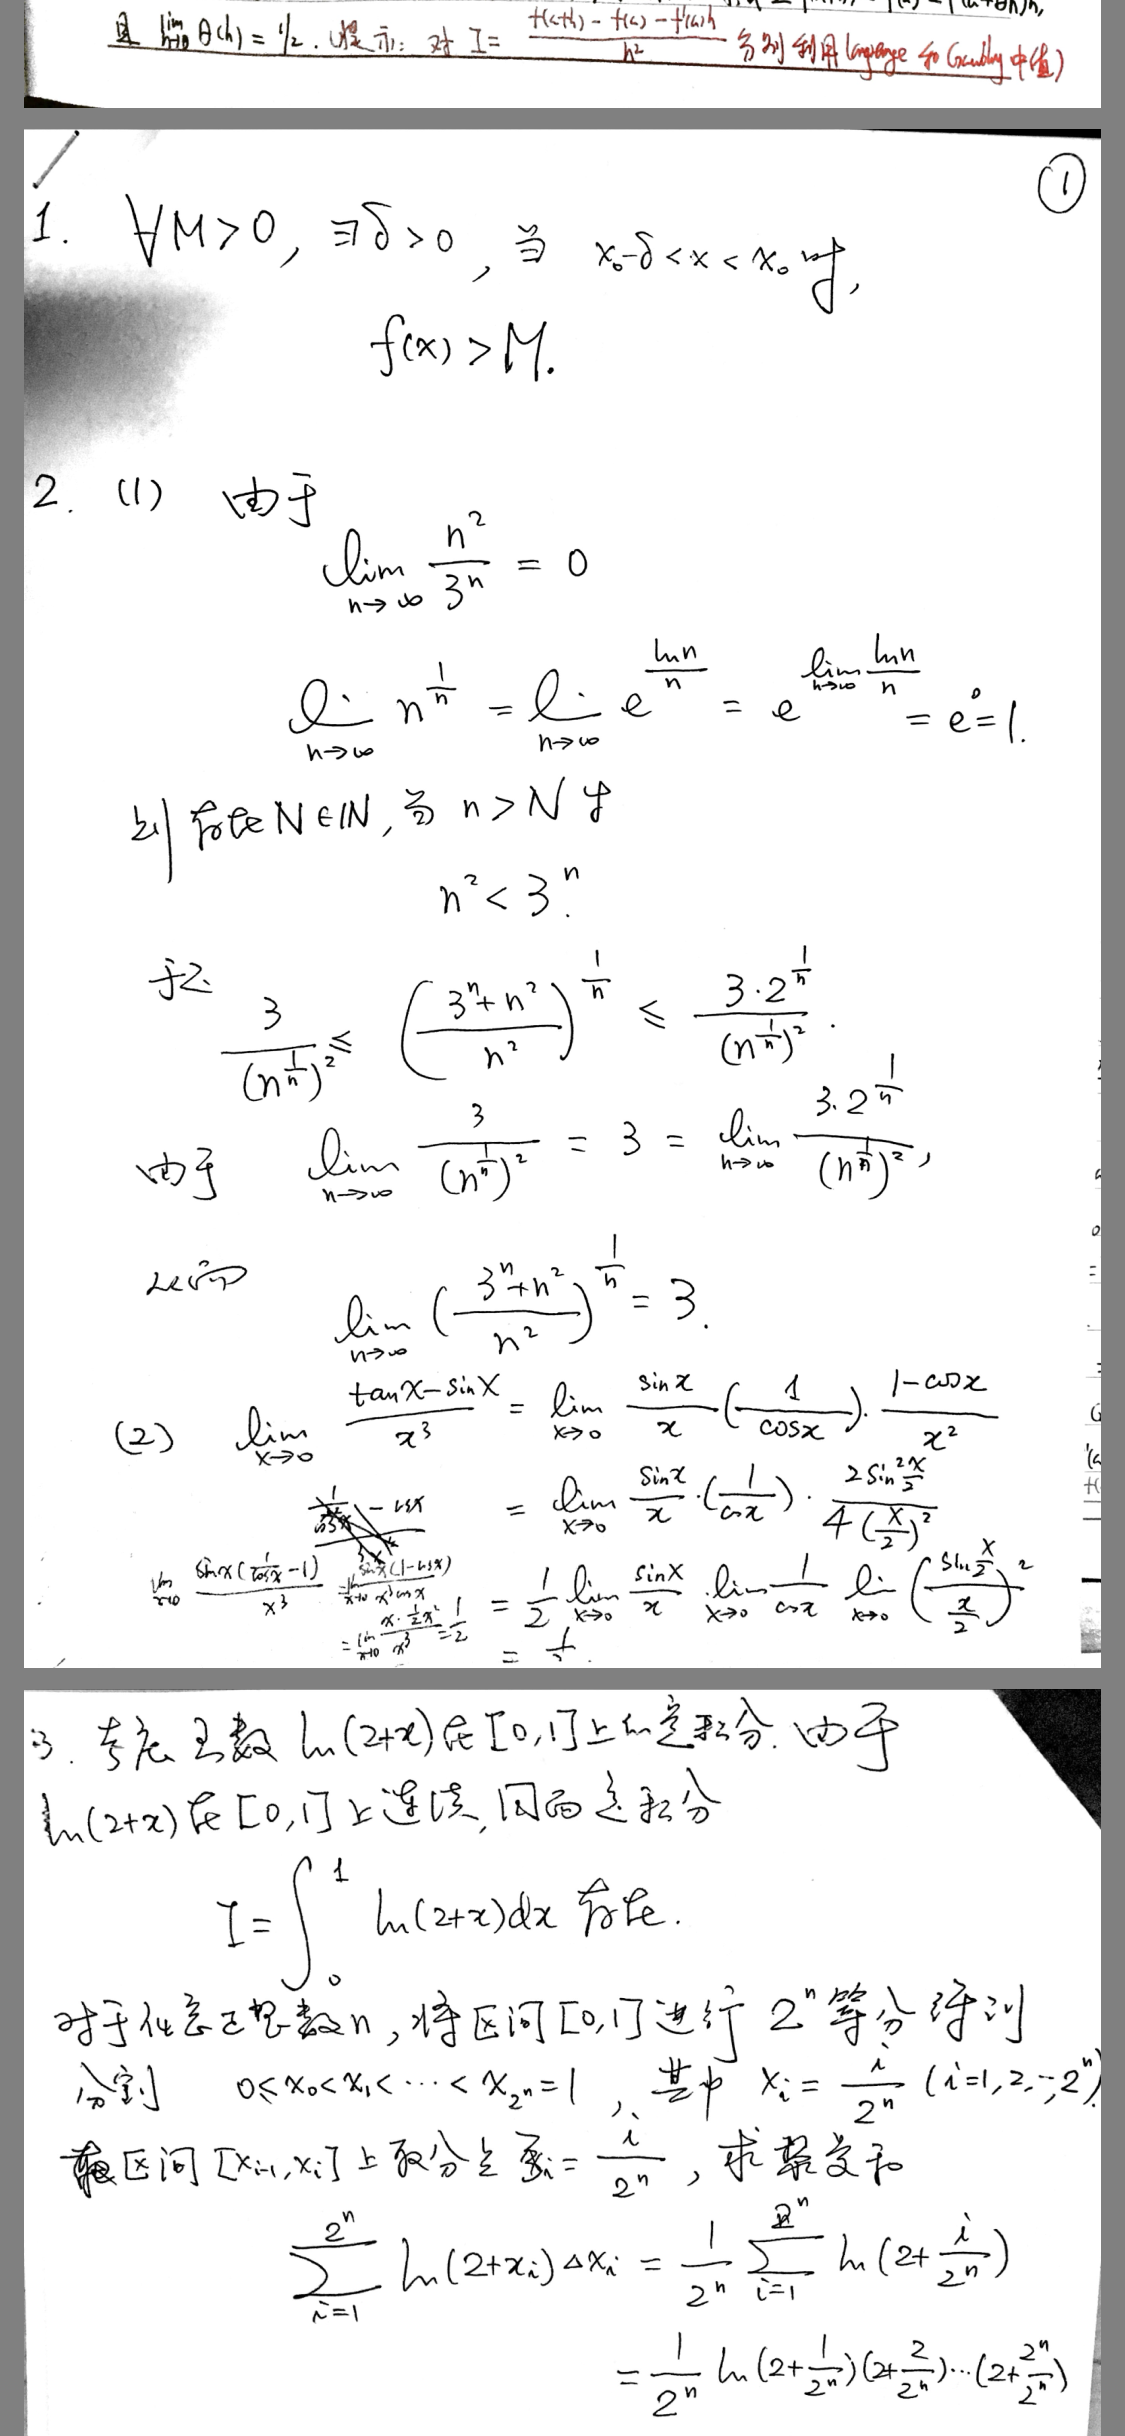 且 lim_{h→0} θ(h) = 1/2. (提示: 对 I = (f(a+h) - f(a) - f'(a)h)/h² 分别利用 Langrange 和 Caushy 中值)
①
1. ∀M>0, ∃δ>0, 当 x₀-δ<x<x₀ 时,
f(x)>M.
2. (1) 由于
lim_{n→∞} n²/3ⁿ = 0
lim_{n→∞} n^{1/n} = lim_{n→∞} e^{ln n/n} = e^{lim_{n→∞} ln n/n} = e⁰=1.
则存在 N∈ℕ, 当 n>N 时
n² < 3ⁿ.
于是 3/(n^{1/n})² ≤ ((3ⁿ+n²)/n²)^{1/n} ≤ 3·2^{1/n}/(n^{1/n})².
由于 lim_{n→∞} 3/(n^{1/n})² = 3 = lim_{n→∞} 3·2^{1/n}/(n^{1/n})²,
lim_{n→∞} ((3ⁿ+n²)/n²)^{1/n} = 3.
(2) lim_{x→0} (tanx-sinx)/x³ = lim_{x→0} sinx/x (1/cosx)·(1-cosx)/x²
= lim_{x→0} sinx/x·(1/cosx)·2sin²(x/2)/(4(x/2)²)
lim_{x→0} sinx(1/cosx -1)/x³ = lim_{x→0} sinx(1-cosx)/(x³cosx)
= lim_{x→0} (x·½x²)/x³ = 1/2
= 1/2 lim_{x→0} sinx/x · lim_{x→0} 1/cosx lim_{x→0} (sin(x/2)/(x/2))²
3. 考虑函数 ln(2+x) 在 [0,1] 上的定积分. 由于
ln(2+x) 在 [0,1] 上连续, 因而定积分
I = ∫₀¹ ln(2+x)dx 存在.
对于任意正整数n, 将区间 [0,1] 进行 2ⁿ 等分得到
分割 0≤x₀<x₁<⋯<x_{2ⁿ}=1, 其中 xᵢ = i/2ⁿ (i=1,2,⋯,2ⁿ)
区间 [xᵢ₋₁,xᵢ] 上取分点 ξᵢ = i/2ⁿ, 求黎曼和
∑_{i=1}^{2ⁿ} ln(2+xᵢ)Δxᵢ = 1/2ⁿ ∑_{i=1}^{2ⁿ} ln(2+i/2ⁿ)
= 1/2ⁿ ln(2+1/2ⁿ)(2+2/2ⁿ)⋯(2+2ⁿ/2ⁿ)